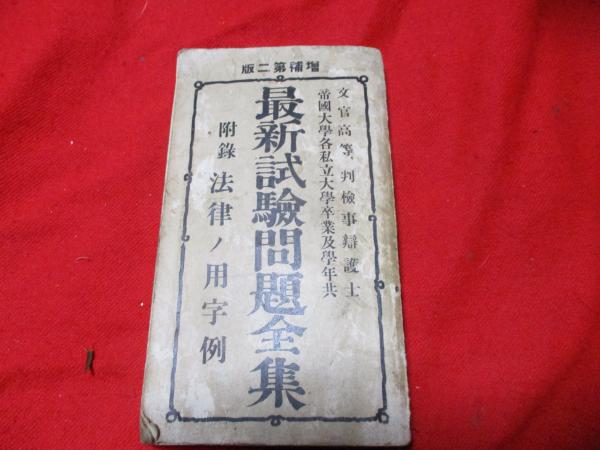 増補第二版
文官高等、判檢事辯護士
帝國大學各私立大學卒業及學年共
最新試驗問題全集
附錄 法律ノ用字例